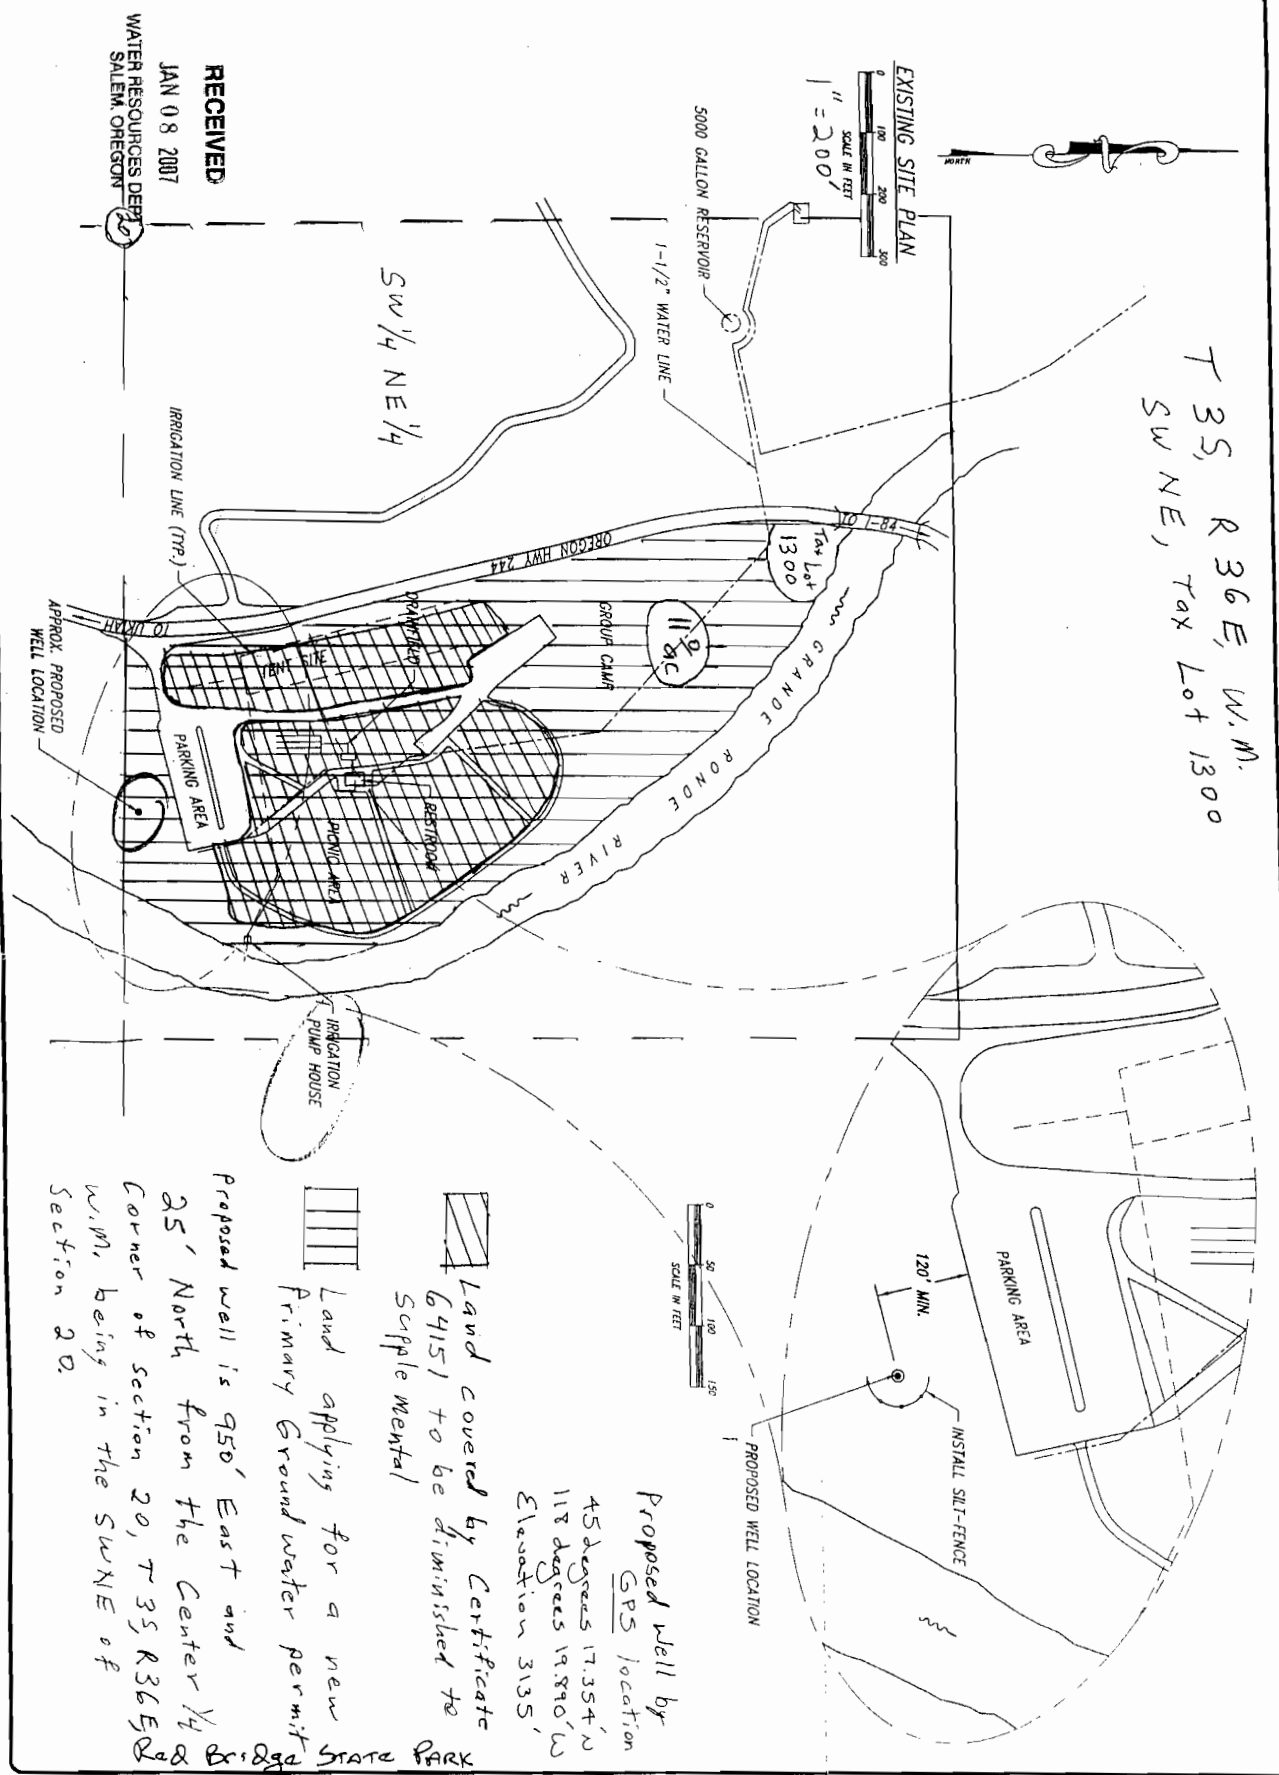 T 3S, R 36E, W.M.
SW NE, Tax Lot 1300
NORTH
EXISTING SITE PLAN
0 100 200 300
SCALE IN FEET
1" = 200'
5000 GALLON RESERVOIR
1-1/2" WATER LINE
RECEIVED
JAN 08 2007
WATER RESOURCES DEPT
SALEM, OREGON
SW 1/4 NE 1/4
IRRIGATION LINE (TYP.)
TO I-84
OREGON HWY 244
TO UKIAH
Tax Lot
1300
11.0
ac
GROUP CAMP
GRANDE RONDE RIVER
DRAINFIELD
TENT SITE
PARKING AREA
RESTROOM
PICNIC AREA
APPROX. PROPOSED
WELL LOCATION
IRRIGATION
PUMP HOUSE
PARKING AREA
120' MIN.
INSTALL SILT-FENCE
PROPOSED WELL LOCATION
0 50 100 150
SCALE IN FEET
Proposed Well by
GPS location
45 degrees 17.354' N
118 degrees 19.890' W
Elevation 3135'
Land covered by Certificate
64151 to be diminished to
Supplemental
Land applying for a new
Primary Ground water permit
Proposed well is 950' East and
25' North from the Center 1/4
Corner of section 20, T 3S, R36E,
W.M. being in the SWNE of
Section 20.
Red Bridge STATE PARK